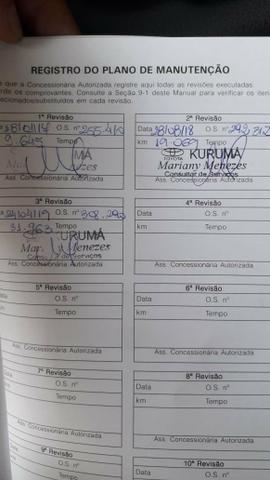 REGISTRO DO PLANO DE MANUTENÇÃO
a que a Concessionária Autorizada registre aqui todas as revisões executadas.
rde os comprovantes. Consulte a Seção 9-1 deste Manual para verificar os iten
ecionados/substituídos em cada revisão.
1ª Revisão
O.S. nº 255.410
9.645 Tempo
MÁ
Ass. Concessionária Autorizada
2ª Revisão
Data 28/08/18 O.S. nº
km 19.069 Tempo
TOYOTA KURUMÁ
Mariany Menezes
Consultor de Serviços
Ass. Concessionária Autorizada
3ª Revisão
24/04/19 O.S. nº 302.290
31.963 Tempo
KURUMÁ
Menezes
Ass. Concessionária Autorizada
4ª Revisão
Data O.S. nº
km Tempo
Ass. Concessionária Autorizada
5ª Revisão
O.S. nº
Tempo
Ass. Concessionária Autorizada
6ª Revisão
Data O.S. nº
km Tempo
Ass. Concessionária Autorizada
7ª Revisão
O.S. nº
Tempo
Ass. Concessionária Autorizada
8ª Revisão
Data O.S. nº
km Tempo
Ass. Concessionária Autorizada
9ª Revisão
O.S. nº
Tempo
10ª Revisão
Data O.S. nº